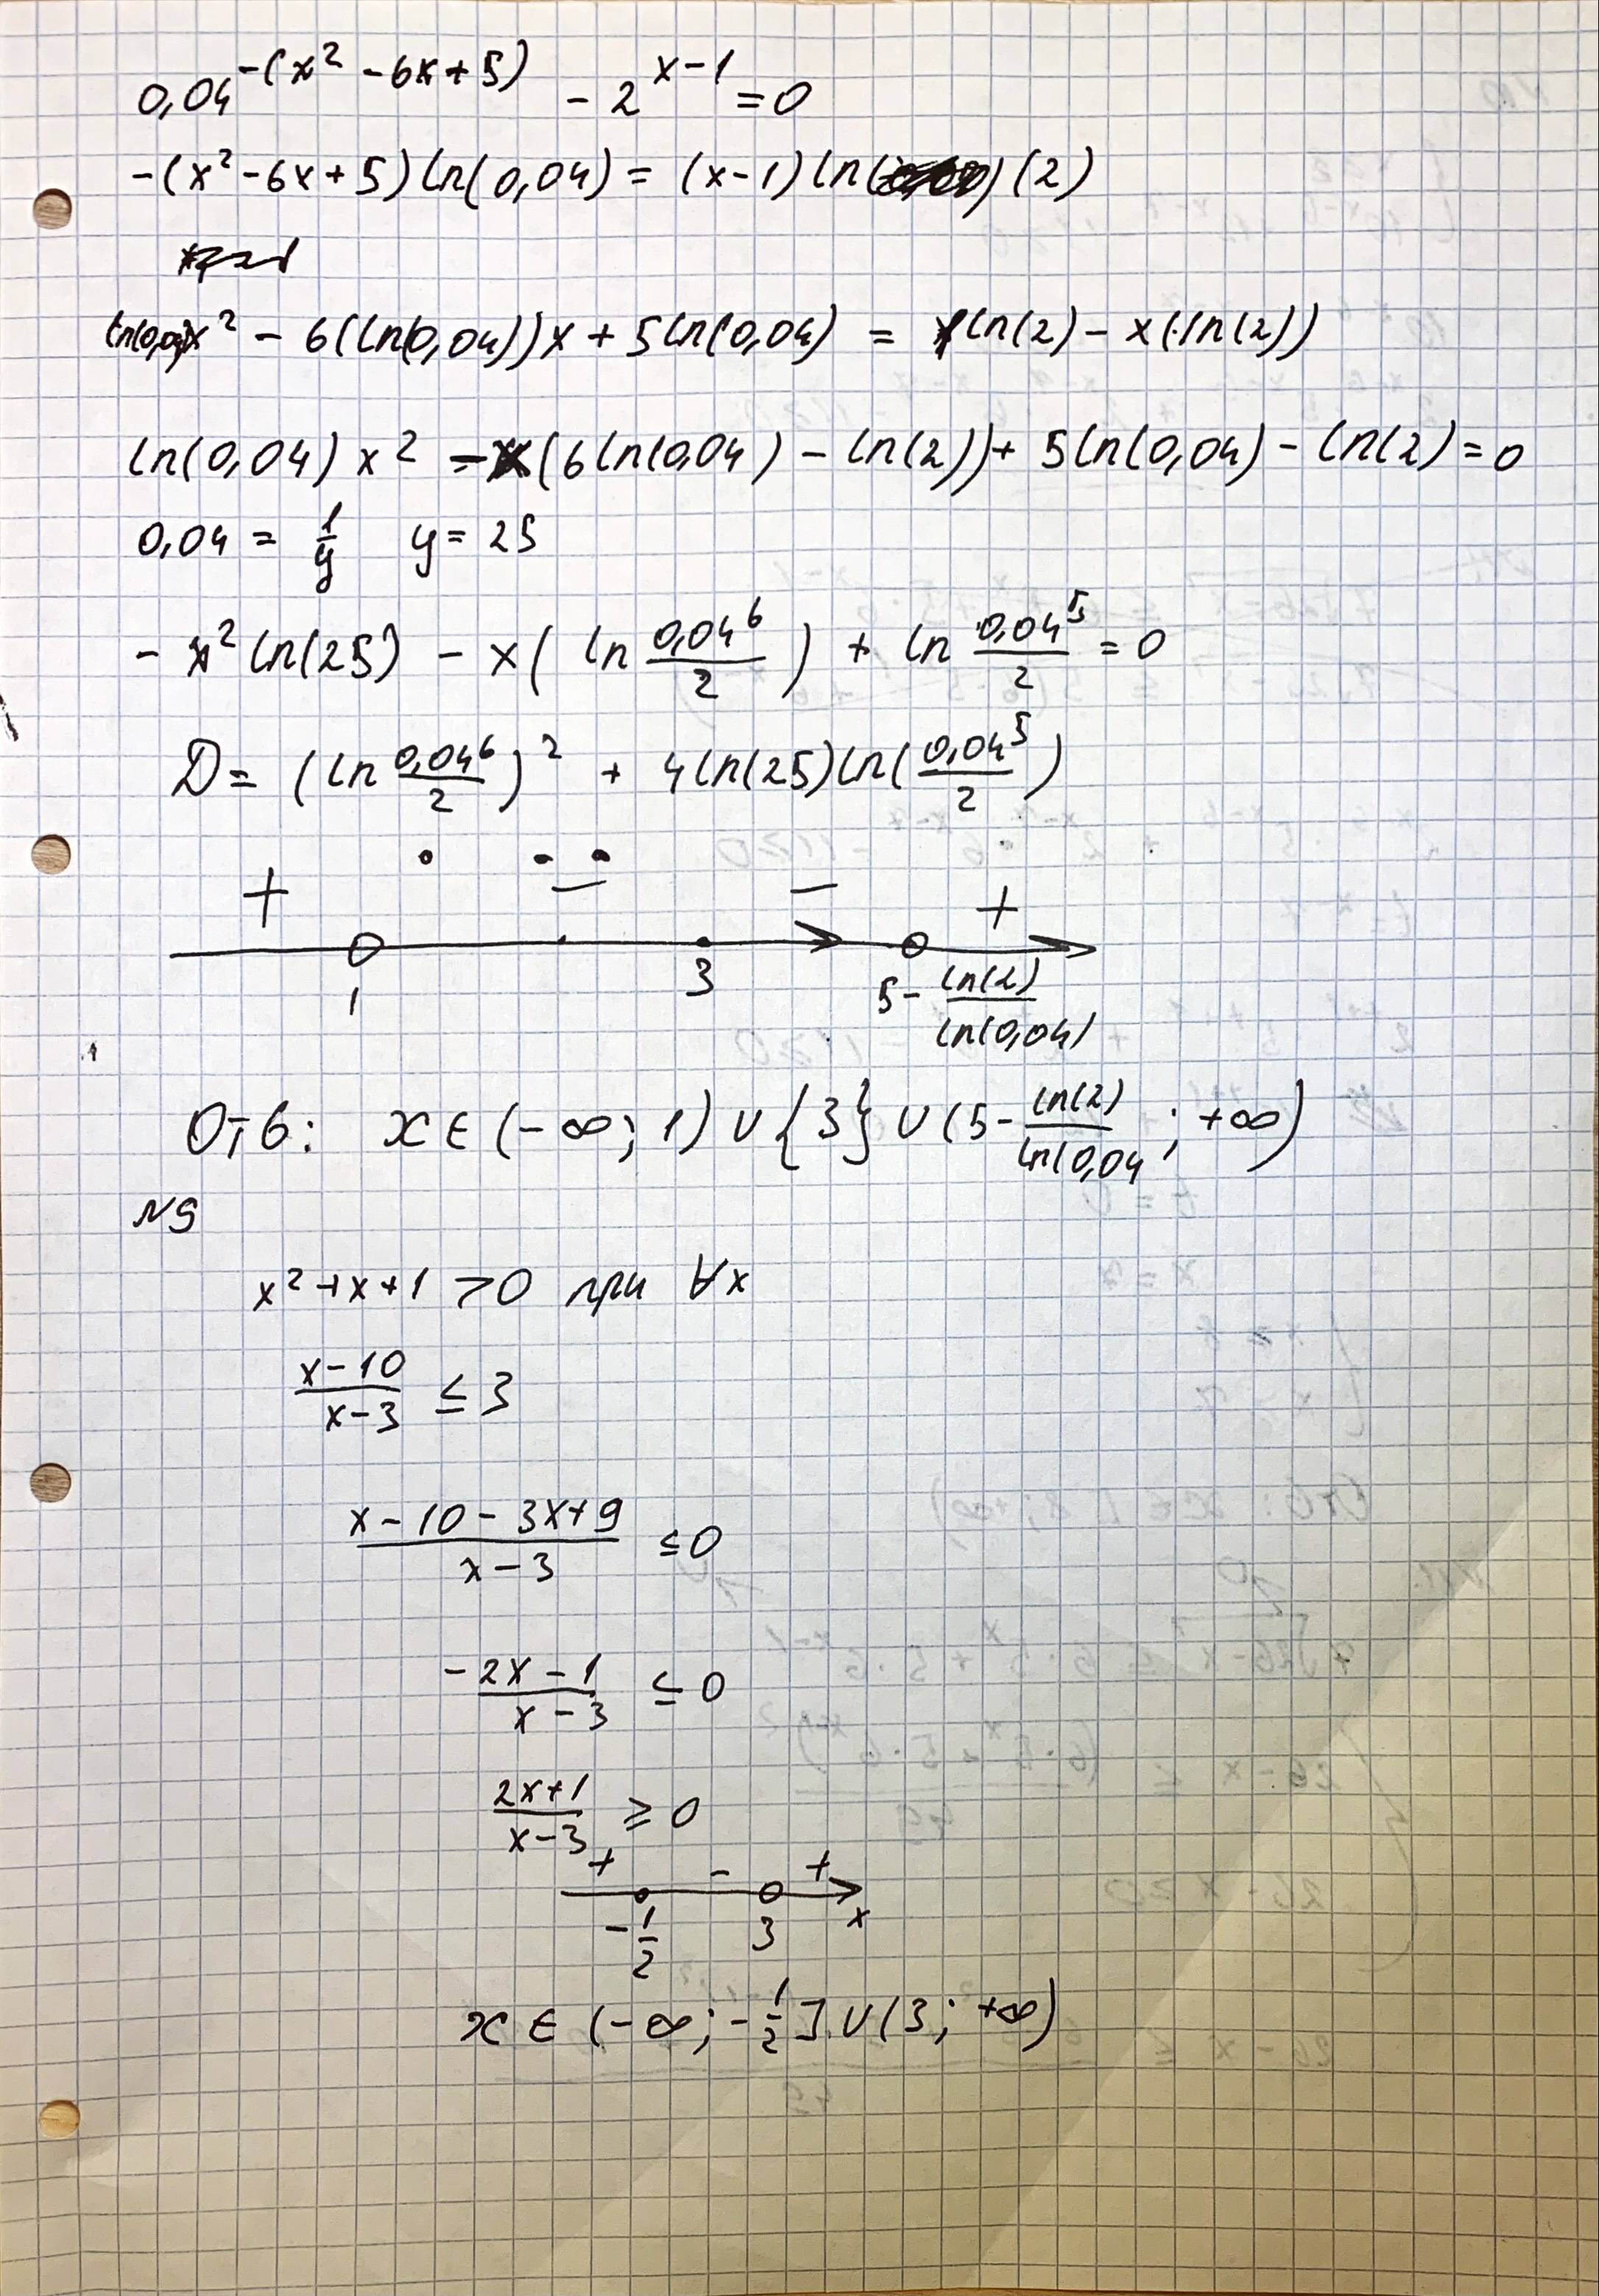 0,04^{-(x² - 6x + 5)} - 2^{x-1} = 0
-(x² - 6x + 5) ln(0,04) = (x-1) ln (2)
ln(0,04)x² - 6(ln(0,04))x + 5ln(0,04) = ln(2) - x(ln(2))
ln(0,04) x² - x(6ln(0,04) - ln(2)) + 5ln(0,04) - ln(2) = 0
0,04 = 1/y   y = 25
- x² ln(25) - x( ln 0,04⁶/2 ) + ln 0,04⁵/2 = 0
D = (ln 0,04⁶/2)² + 4ln(25)ln(0,04⁵/2)
+ − − +
1 3 5 - ln(2)/ln(0,04)
Отв: x ∈ (-∞; 1) ∪ {3} ∪ (5 - ln(2)/ln(0,04 ; +∞)
N9
x² + x + 1 > 0 при ∀x
(x-10)/(x-3) ≤ 3
(x - 10 - 3x + 9)/(x - 3) ≤ 0
(-2x - 1)/(x - 3) ≤ 0
(2x+1)/(x-3) ≥ 0
+ - +
-1/2 3 x
x ∈ (-∞; -1/2] ∪ (3; +∞)